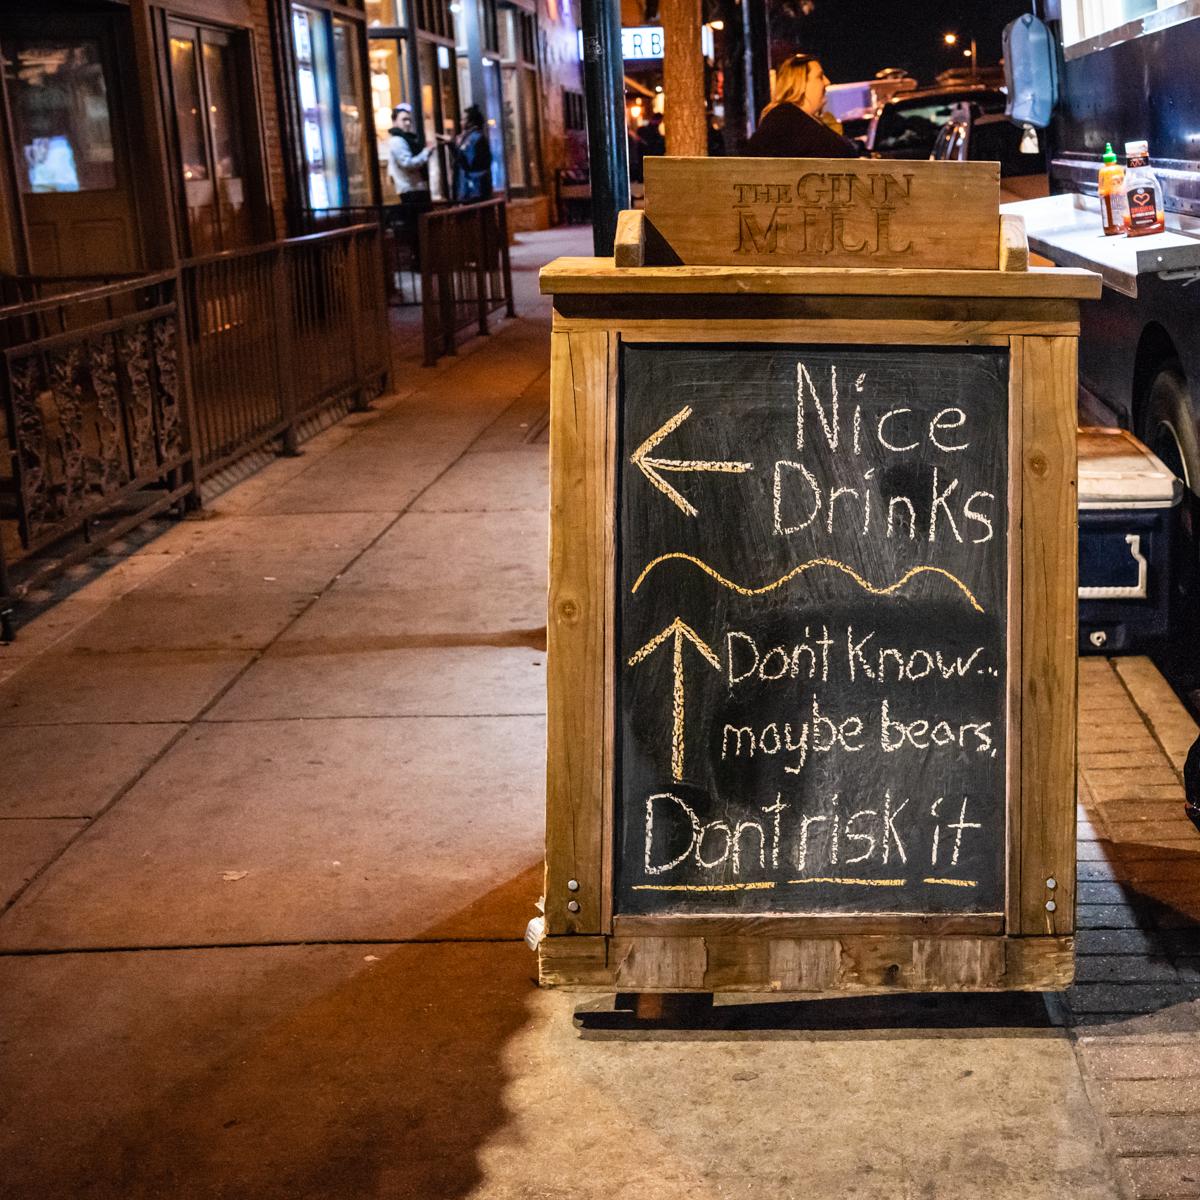 ERB
THE GINN
MILL
Nice
Drinks
Don't Know...
maybe bears,
Dont risk it